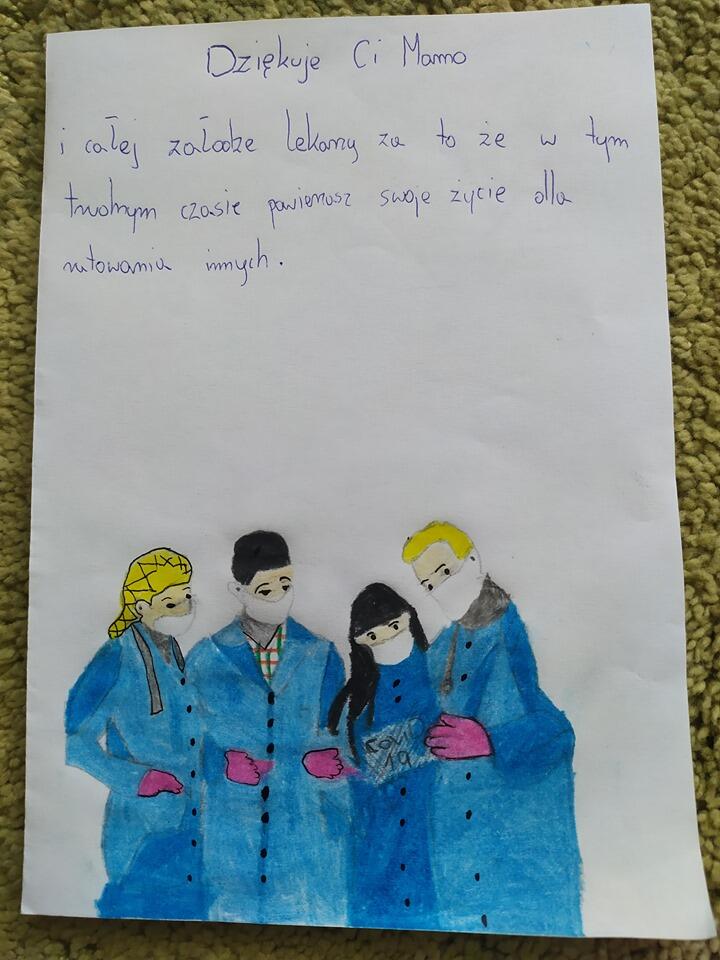 Dziękuje Ci Mamo
i całej załodze lekarzy za to że w tym
trudnym czasie poświęcasz swoje życie dla
ratowania innych.
COVID
19